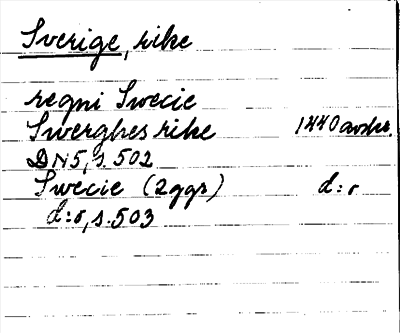 Sverige, rike
regni Swecie
Swerghes rike 1440 avskr.
DN5, s. 502
Swecie (2ggr) d:o
d:o, s. 503